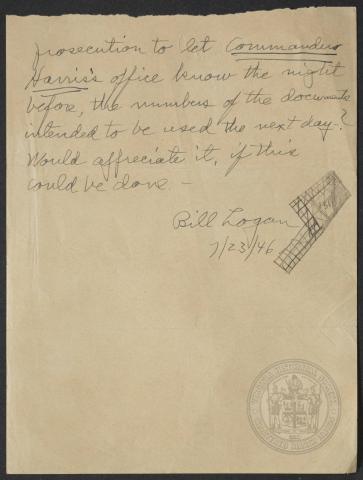 prosecution to let Commander
Harris's office know the night
before, the numbers of the documents
intended to be used the next day?
Would appreciate it, if this
could be done –
Bill Logan
7/23/46